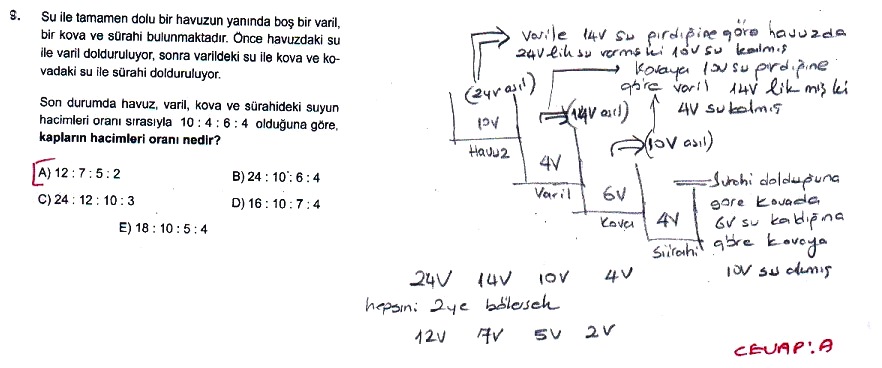 9. Su ile tamamen dolu bir havuzun yanında boş bir varil,
bir kova ve sürahi bulunmaktadır. Önce havuzdaki su
ile varil dolduruluyor, sonra varildeki su ile kova ve ko-
vadaki su ile sürahi dolduruluyor.
Son durumda havuz, varil, kova ve sürahideki suyun
hacimleri oranı sırasıyla 10 : 4 : 6 : 4 olduğuna göre,
kapların hacimleri oranı nedir?
A) 12 : 7 : 5 : 2
B) 24 : 10 : 6 : 4
C) 24 : 12 : 10 : 3
D) 16 : 10 : 7 : 4
E) 18 : 10 : 5 : 4
Varile 14V su girdiğine göre havuzda
24V lik su varmış ki 10V su kalmış
Kovaya 10V su girdiğine
göre varil 14V lik miş ki
4V su kalmış
(24V asıl)
(14V asıl)
(10V asıl)
10V
Havuz
4V
Varil
6V
Kova
4V
Sürahi
Surahi dolduğuna
göre kovada
6V su kaldığına
göre kovaya
10V su olmış
24V 14V 10V 4V
hepsini 2ye bölersek
12V 7V 5V 2V
CEVAP:A